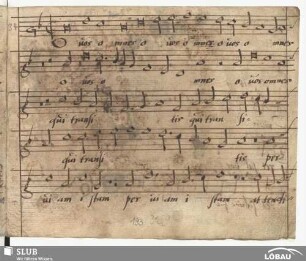 uos o mnes o uos o mnes o uos o mnes
o uos o mnes o uos omnes
qui transi tis qui tran si
qui transi tis per
ui am i stam per ui am i stam at tendi
193
SLUB
Wir führen Wissen.
LÖBAU